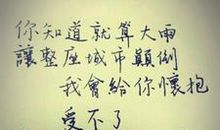 你知道就算大雨
讓整座城市顛倒
我會給你懷抱
受不了